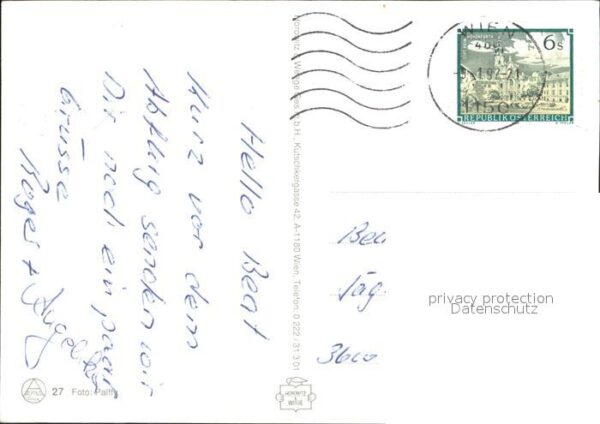 Hello Beat
Kurz vor dem
Abflug senden wir
Dir noch ein paar
Grüsse
Roger + Angelika
WIEN
1150
6s
REPUBLIK ÖSTERREICH
Horowitz u. Weege Ges.m.b.H., Kutschkergasse 42, A-1180 Wien, Telefon: 0 222 / 31 3 01
Täg
privacy protection
Datenschutz
27 Foto: Palffy
HOROWITZ
&
WEEGE